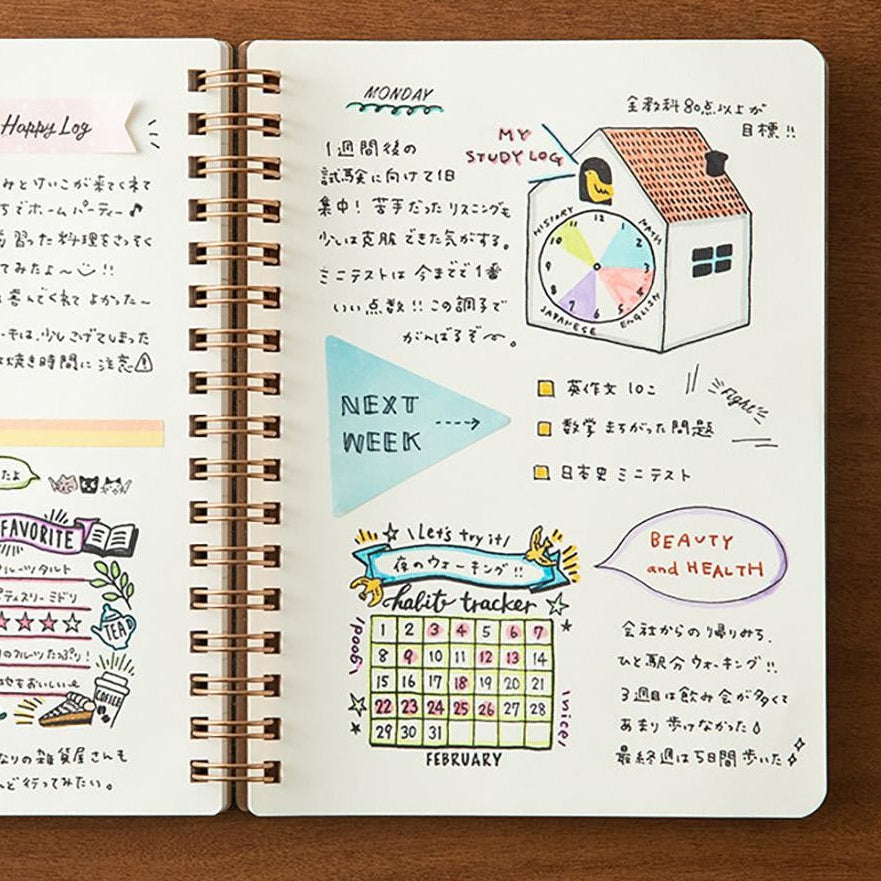 Happy Log
みとけいこが来てくれて
ちでホームパーティー♪
習った料理をさっそく
てみたよ〜!!
喜んでくれてよかった〜
少しこげてしまった
焼き時間に注意
たよ
FAVORITE
フルーツタルト
パティスリーミドリ
TEA
のフルーツたっぷり!
もおいしい
COFFEE
なりの雑貨屋さんも
ど行ってみたい。
MONDAY
1週間後の
試験に向けて1日
集中!苦手だったリスニングも
少しは克服できた気がする。
ミニテストは今までで1番
いい点数!!この調子で
がんばるぞ〜。
MY
STUDY LOG
全教科80点以上が
目標!!
HISTORY
MATH
JAPANESE
ENGLISH
12
1
2
3
4
5
6
7
8
9
10
11
NEXT
WEEK
英作文10こ
数学まちがった問題
日本史ミニテスト
Fight
\Let's try it/
夜のウォーキング!!
habits tracker
1 2 3 4 5 6 7
8 9 10 11 12 13 14
15 16 17 18 19 20 21
22 23 24 25 26 27 28
29 30 31
\good/
\nice/
FEBRUARY
BEAUTY
and HEALTH
会社からの帰りみち、
ひと駅分ウォーキング!!
3週目は飲み会が多くて
あまり歩けなかった
最終週は5日間歩いた